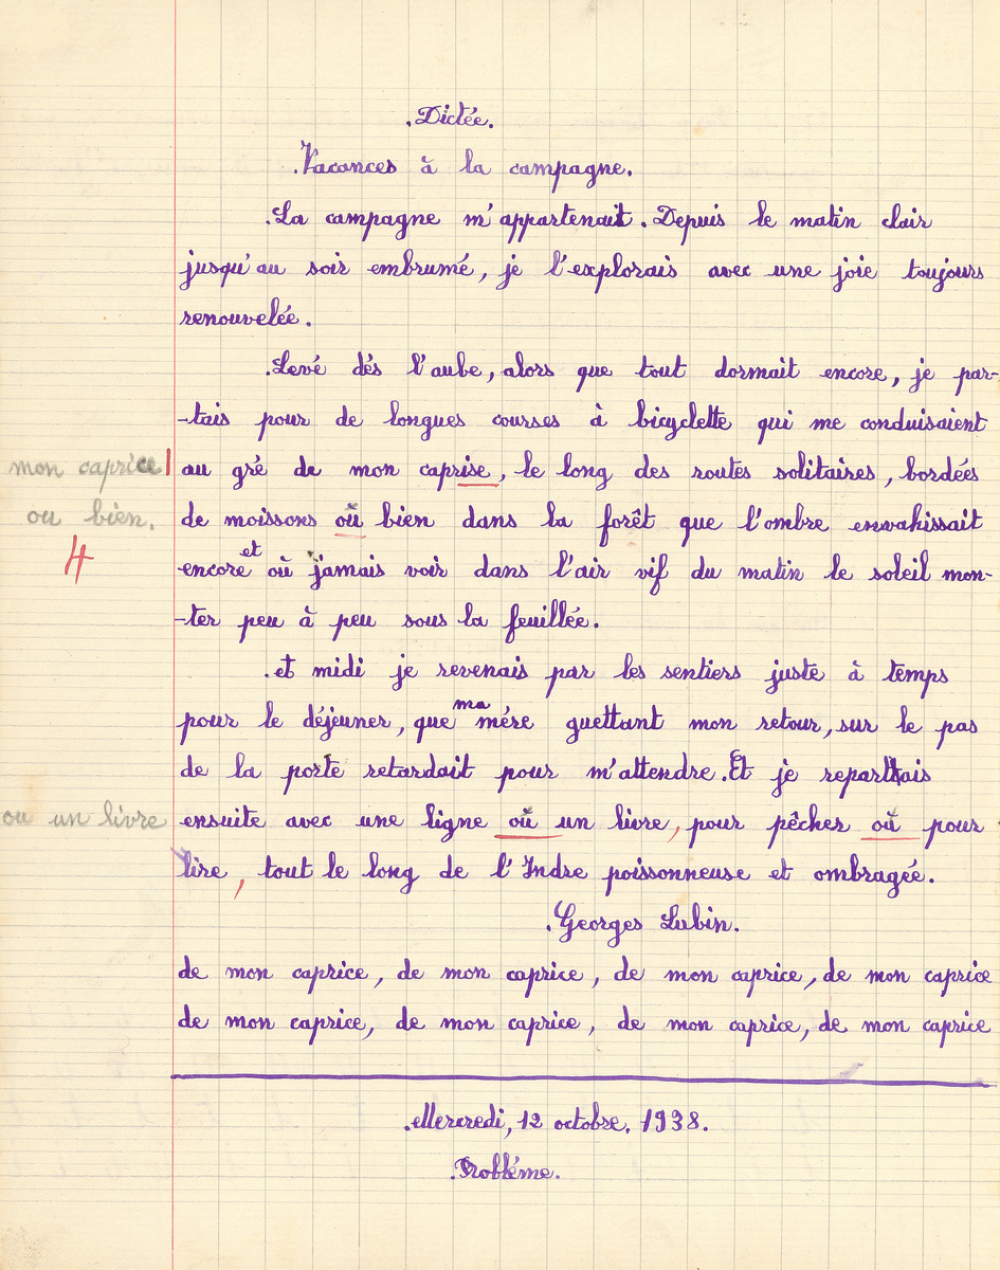 .Dictée.
.Vacances à la campagne.
.La campagne m'appartenait. Depuis le matin clair
jusqu'au soir embrumé, je l'explorais avec une joie toujours
renouvelée.
.Levé dés l'aube, alors que tout dormait encore, je par-
-tais pour de longues courses à bicyclette qui me conduisaient
mon caprice au gré de mon caprise, le long des routes solitaires, bordées
ou bien. de moissons où bien dans la forêt que l'ombre envahissait
4 encore et où jamais voir dans l'air vif du matin le soleil mon-
-ter peu à peu sous la feuillée.
.et midi je revenais par les sentiers juste à temps
pour le déjeuner, que ma mére guettant mon retour, sur le pas
de la porte retardait pour m'attendre. Et je repartais
ou un livre ensuite avec une ligne où un livre, pour pêcher où pour
lire, tout le long de l'Indre poissonneuse et ombragée.
.Georges Lubin.
de mon caprice, de mon caprice, de mon caprice, de mon caprice
de mon caprice, de mon caprice, de mon caprice, de mon caprice
.Mercredi, 12 octobre. 1938.
.Probléme.